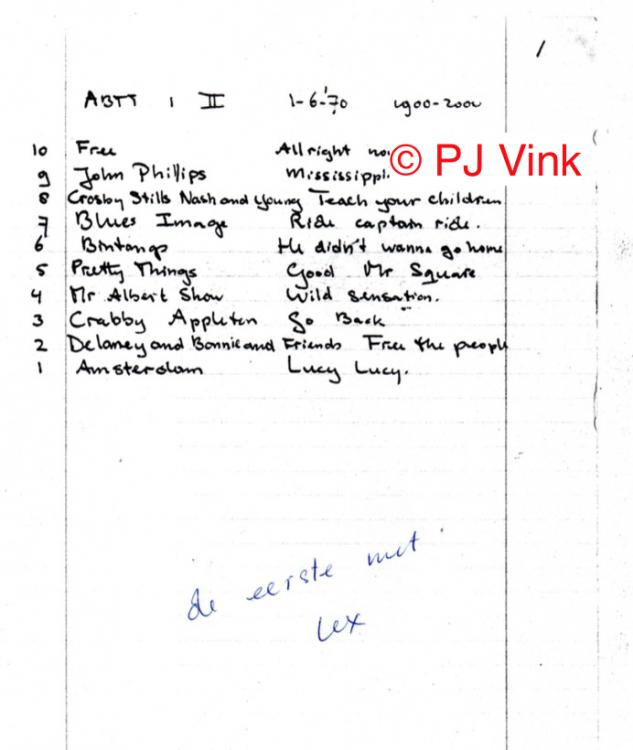 1
ABTT 1 II 1-6-'70 1900-2000
10 Free Allright now
© PJ Vink
9 John Phillips Mississippi
8 Crosby Stills Nash and Young Teach your children
7 Blues Image Ride captain ride.
6 Bintangs He didn't wanna go home
5 Pretty Things Good Mr Square
4 Mr Albert Show Wild sensation.
3 Crabby Appleton Go Back
2 Delaney and Bonnie and Friends Free the people
1 Amsterdam Lucy Lucy.
de eerste met
Lex